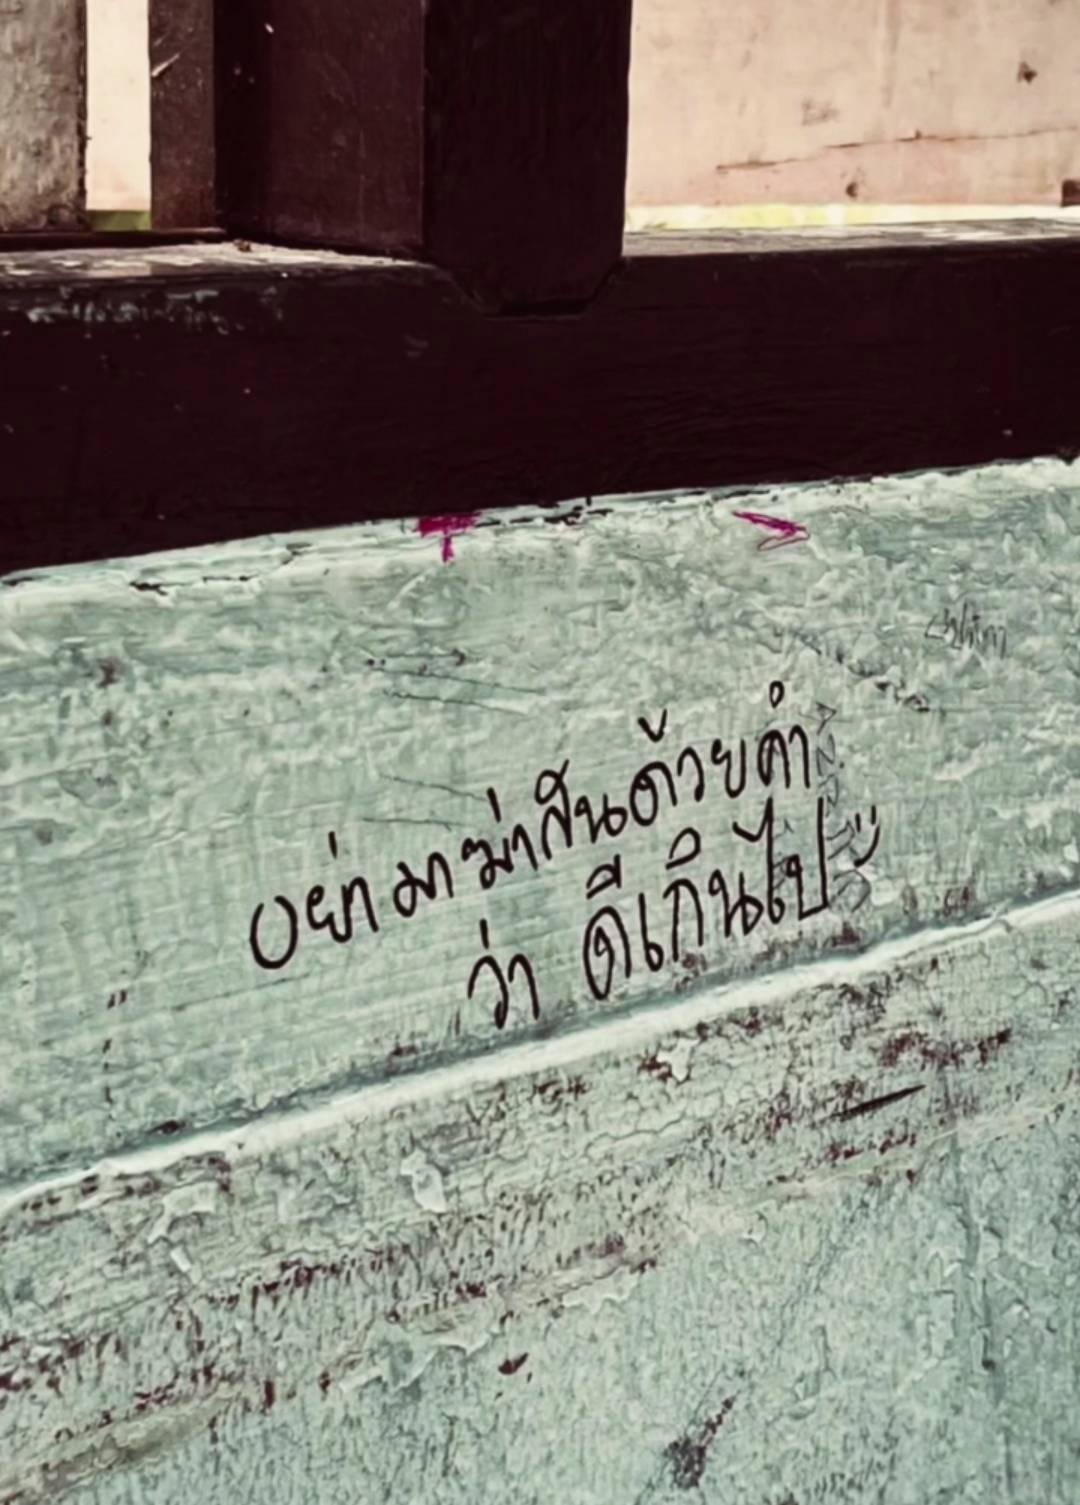 อย่ามาฆ่ากันด้วยคำ
ว่า ดีเกินไป